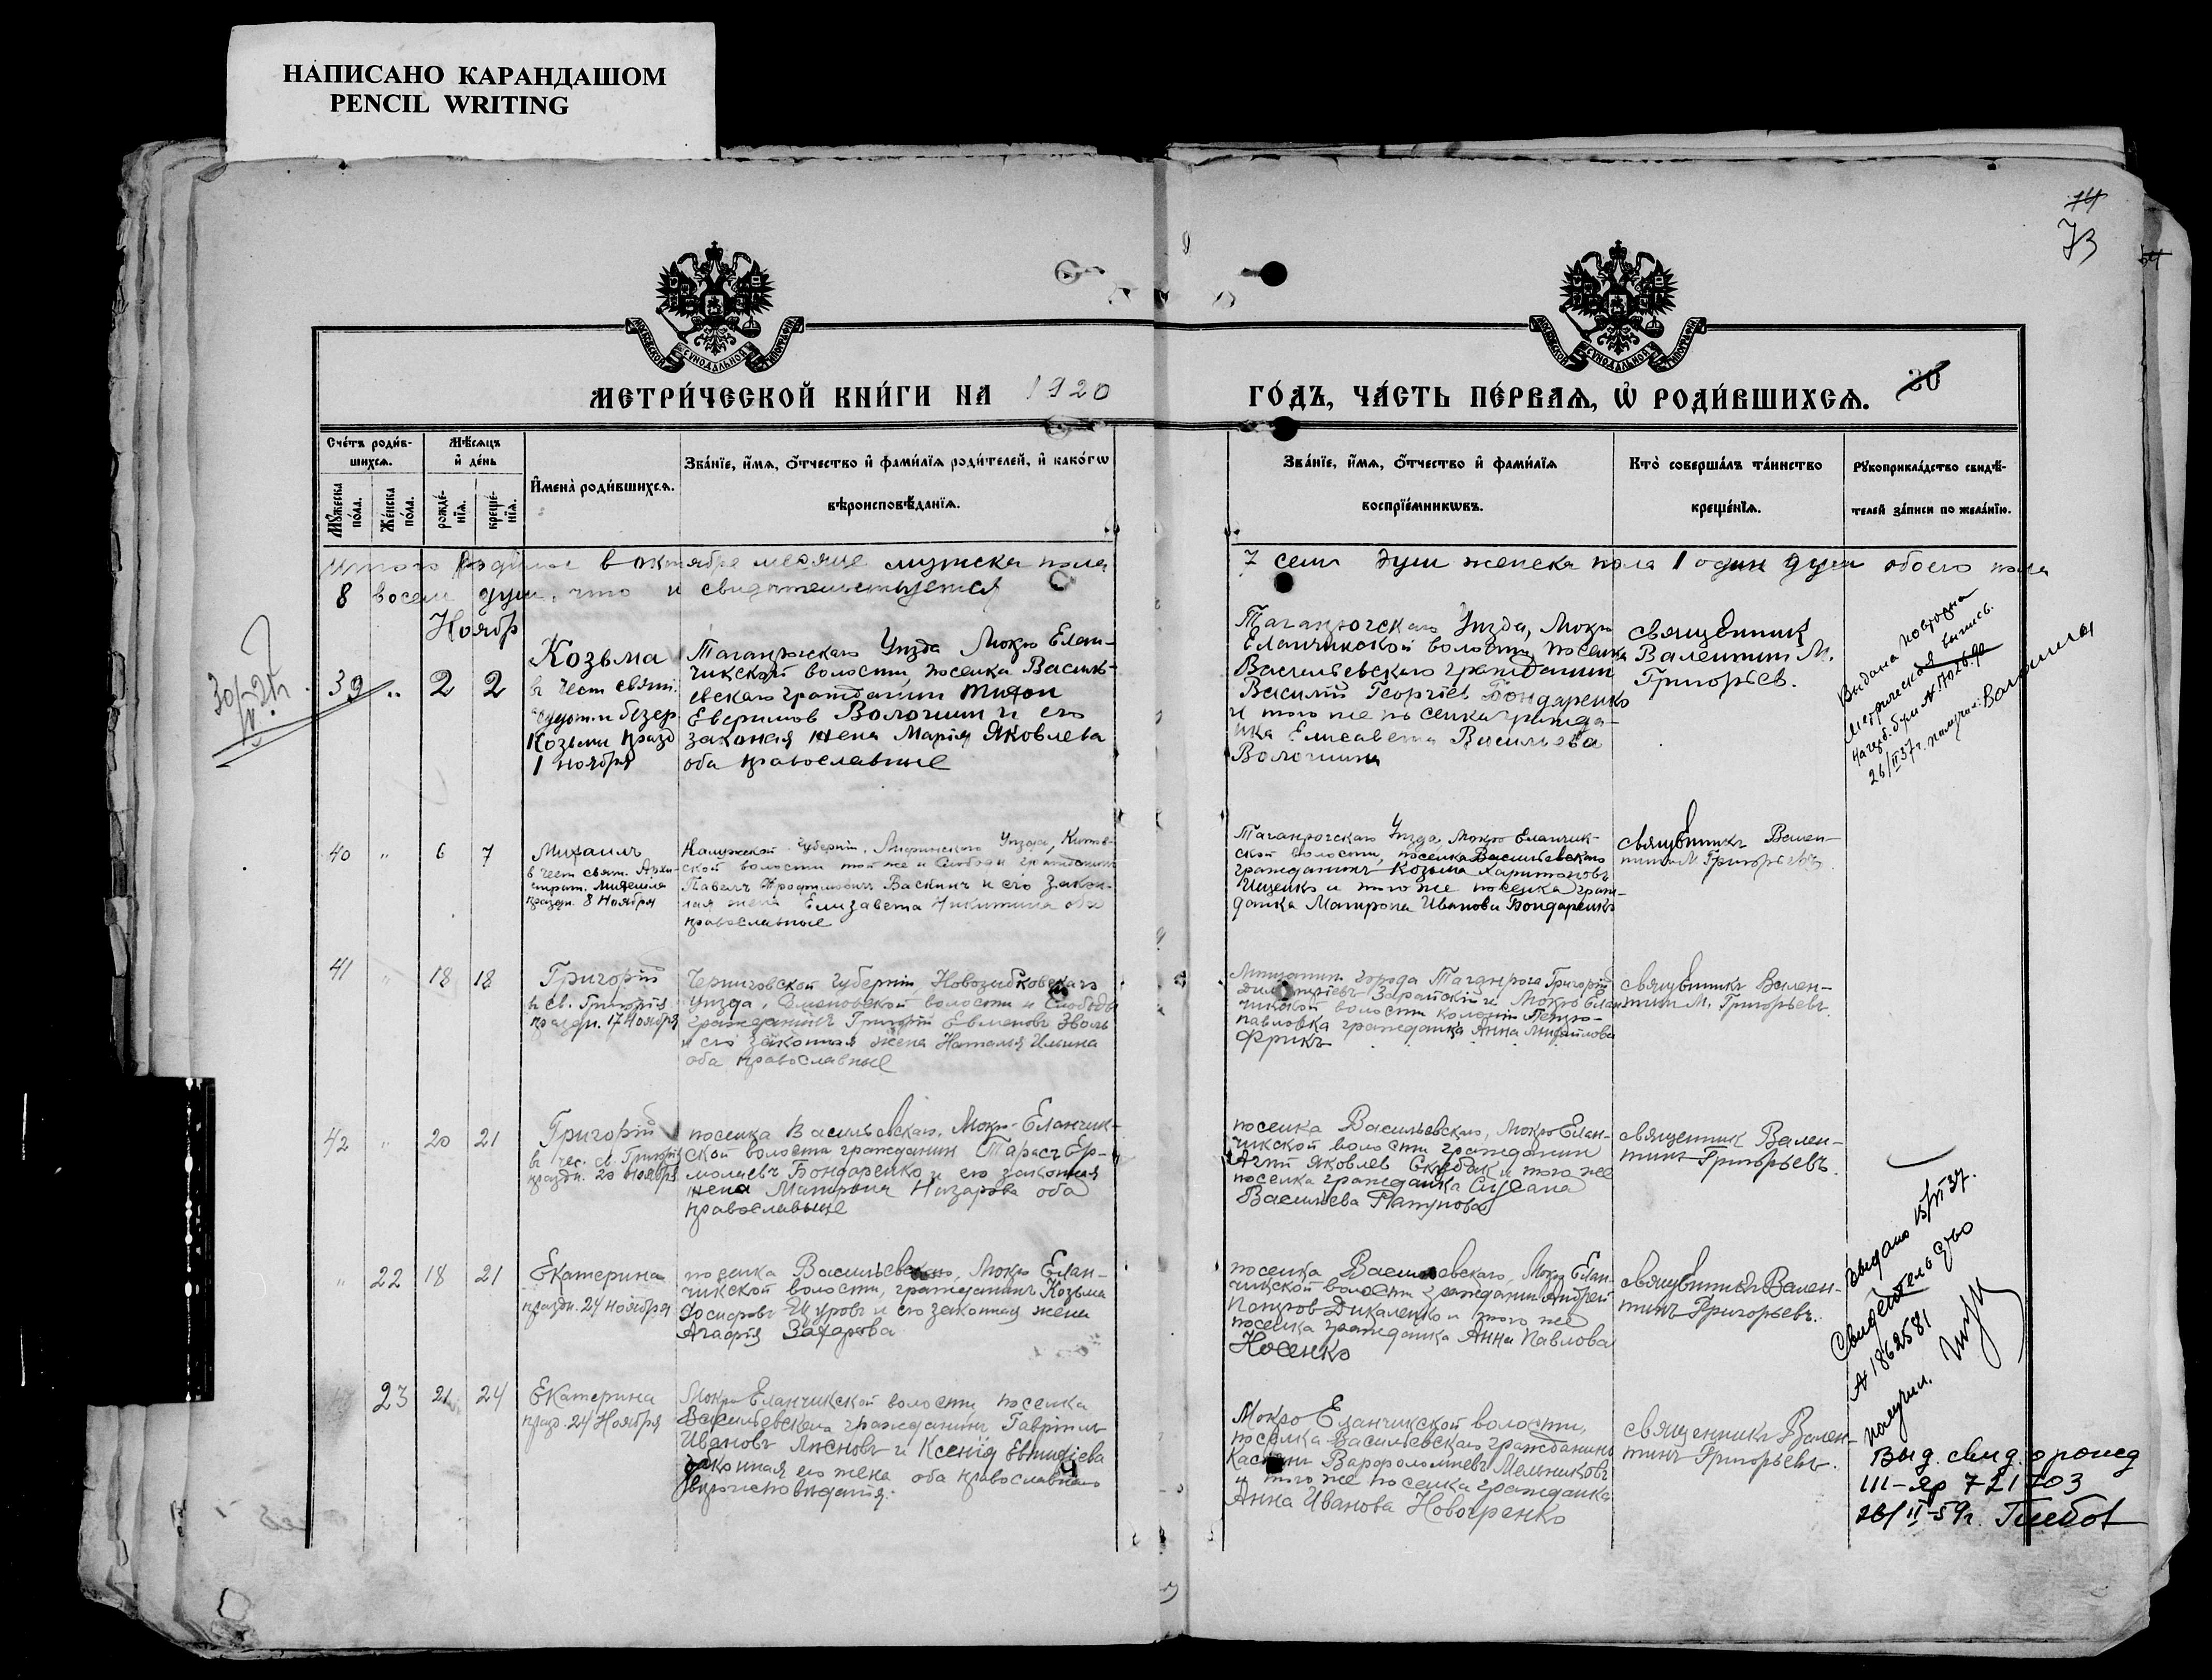 НАПИСАНО КАРАНДАШОМ
PENCIL WRITING
14
73
МОСКОВСКОЙ СѴНОДАЛЬНОЙ ТИПОГРАФІИ
МОСКОВСКОЙ СѴНОДАЛЬНОЙ ТИПОГРАФІИ
МЕТРИ́ЧЕСКОЙ КНИ́ГИ НА 1920
ГО́ДЪ, ЧА́СТЬ ПЕ́РВАѦ, Ѡ҆ РОДИ́ВШИХСѦ. 30
Сче́тъ роди́в-
шихсѧ.
Мѣ́сѧцъ
и҆ де́нь
Му́жеска по́ла.
Же́нска по́ла.
рожде́-
нїѧ.
креще́-
нїѧ.
И҆мена̀ роди́вшихсѧ.
Зва́нїе, и҆́мѧ, ѻ҆́тчество и҆ фами́лїѧ роди́телей, и҆ како́гѡ
вѣроисповѣ́данїѧ.
Зва́нїе, и҆́мѧ, ѻ҆́тчество и҆ фами́лїѧ
воспрїе́мникѡвъ.
Кто̀ соверша́лъ та́инство
креще́нїѧ.
Рꙋкоприкла́дство свидѣ́-
телей за́писи по жела́нїю.
Итого родилос в октябре месяце мужска пола
7 семь душ женска пола 1 один душа обоего пола
8 восем душ, что и свидетельствуется
Ноябр
30/V 28 г.
39 " 2 2
Козьма
в чест святі.
чудот. и безер
Козьмы празд
1 ноября
Таганрогскаго Уезда Мокро Елан-
чикской волости, поселка Василь-
евскаго гражданин Тихон
Евфимов Волошин и его
законая жена Марія Яковлева
оба православные
Таганрогскаго Уезда, Мокро
Еланчикской волости, поселка
Васильевскаго гражданин
Василій Георгіев Бондаренко
и того же поселка гражда-
нка Елисавета Васильева
Волошина
священник
Валентин М.
Григорьев.
Выдана повторная
метрическая выпись.
26/II 37 г. получил: Волошин
40 " 6 7
Михаилъ
в чест свят. Архи-
страт. Михаила
праздн. 8 Ноября
Калужской губерніи, Лихвинскаго Уезда,
ской волости той же и слободы гражданин
Павелъ Трофимовичъ Васкинъ и его закон-
ная жена Елизавета Никитина оба
православные
Таганрогскаго Уезда, Мокро Еланчик-
ской волости, поселка Васильевскаго
гражданинъ Козьма Харитоновъ
Ищенко и того же поселка граж-
данка Матрона Иванова Бондаренко
священникъ Вален-
тинъ М. Григорьевъ
41 " 18 18
Григорій
в св. Григорія
праздн. 17 Ноября
Черниговской губерніи, Новозыбковскаго
уезда, Семеновской волости и Слободы
гражданинъ Григорій Евменовъ Зволь
и его законная жена Наталья Ильина
оба православные
Мещанин города Таганрога Григорій
Димитріевъ Зарайскій и Мокро Елан-
чикской волости колоніи Петро-
павловка гражданка Анна Михайлова
Фрикъ
священникъ Вален-
тин М. Григорьевъ.
42 " 20 21
Григорій
в чес. св. Григорія
праздн. 20 Ноября
поселка Васильевскаго, Мокро-Еланчик-
ской волости гражданин Тарасъ Ер-
молаевъ Бондаренко и его законная
жена Матрона Назарова оба
православные
поселка Васильевскаго, Мокро Елан-
чикской волости гражданин
Агей Яковлев Скубак и того же
поселка гражданка Сусана
Васильева Рапунова
священник Вален-
тинъ Григорьевъ.
" 22 18 21
Екатерина
праздн. 24 ноября
поселка Васильевскаго, Мокро Елан-
чикской волости, гражданинъ Козьма
Іосифовъ Щуровъ и его законная жена
Агафія Захарова
поселка Васильевскаго, Мокро Елан-
чикской волости гражданин Андрей
Петров Дикаленко и того же
поселка гражданка Анна Павлова
Носенко
священникъ Вален-
тинъ Григорьевъ.
Выдано 15/VI 37.
Свидетельство
№ 1862581
получил.
23 21 24
Екатерина
празд. 24 Ноября
Мокро Еланчикской волости, поселка
Васильевскаго гражданинъ Гавріилъ
Ивановъ Лисновъ и Ксенія Евтихіева
законная его жена оба православнаго
вероисповеданія.
Мокро Еланчикской волости,
поселка Васильевскаго гражданинъ
Касьянъ Варфоломеевъ Мельниковъ
и того же поселка гражданка
Анна Иванова Новогренко
священникъ Вален-
тинъ Григорьевъ.
Выд. свид. о рожд
III-яр 721703
26/II-59 г. Глебов